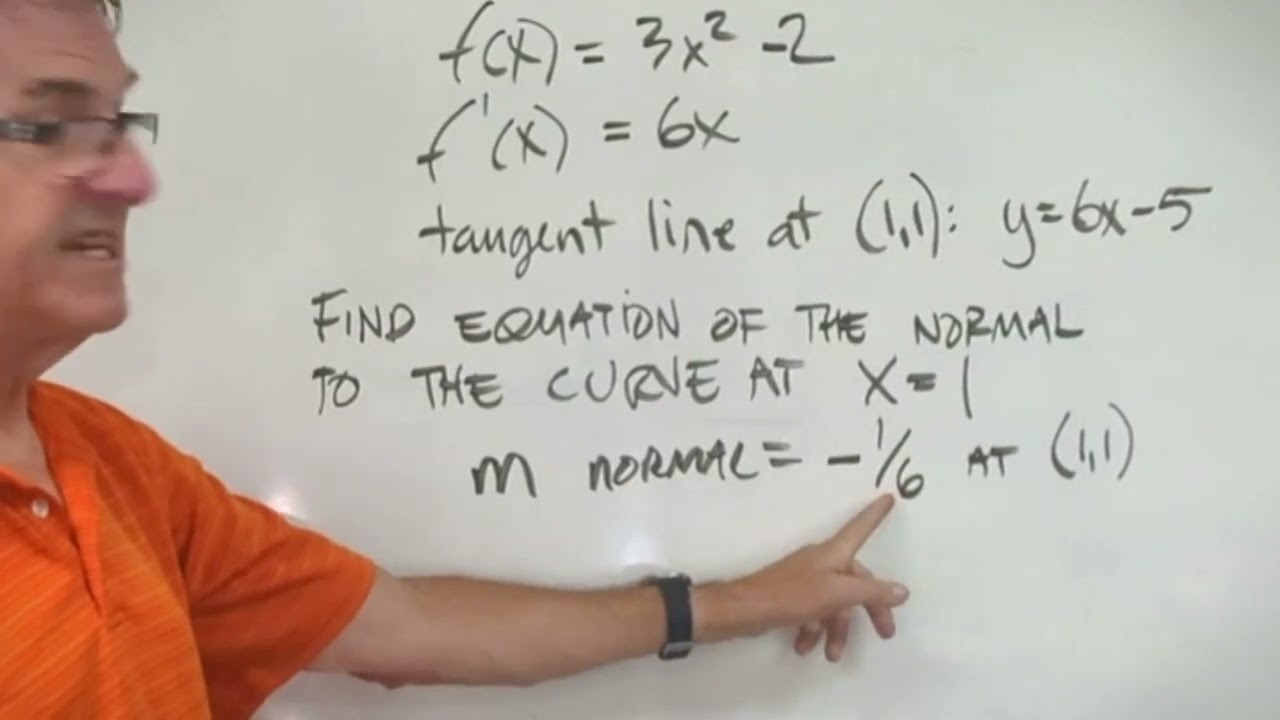 f(x) = 3x² -2
f'(x) = 6x
tangent line at (1,1): y=6x-5
FIND EQUATION OF THE NORMAL
TO THE CURVE AT X=1
m NORMAL= -1/6 AT (1,1)